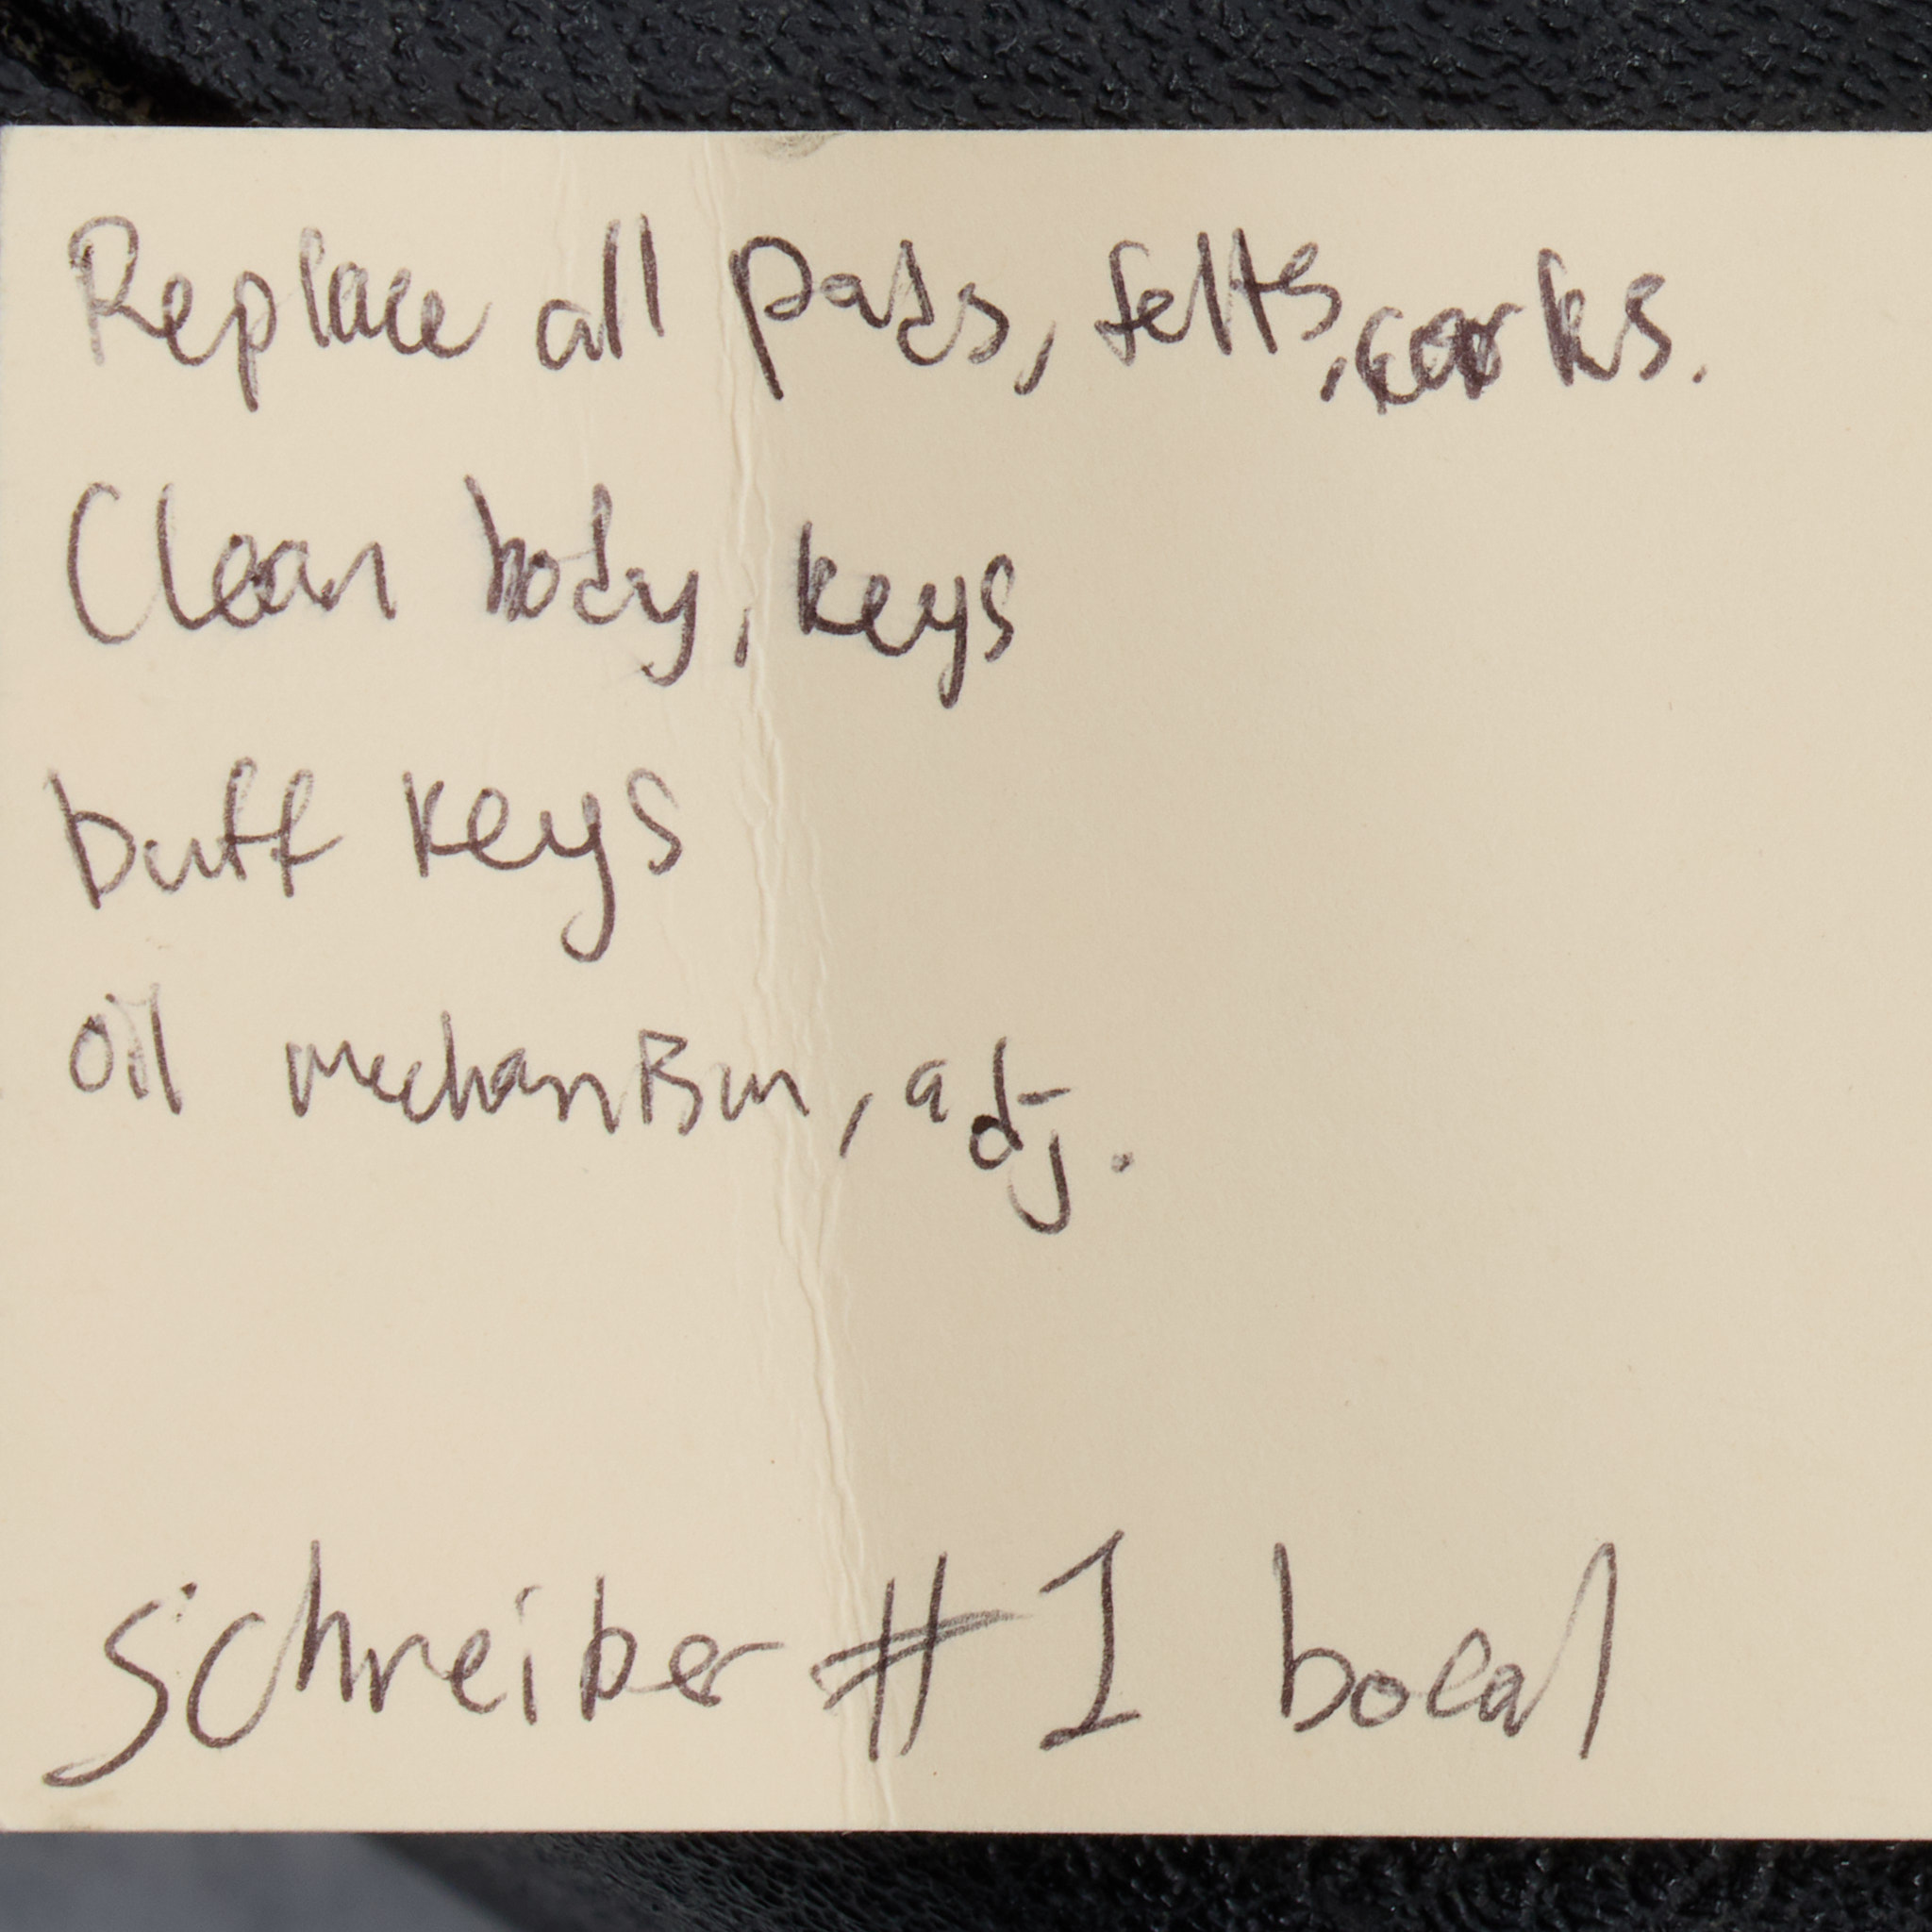 Replace all pads, felts, corks.
Clean body, keys
buff keys
oil mechanism, adj.
Schreiber #1 bocal